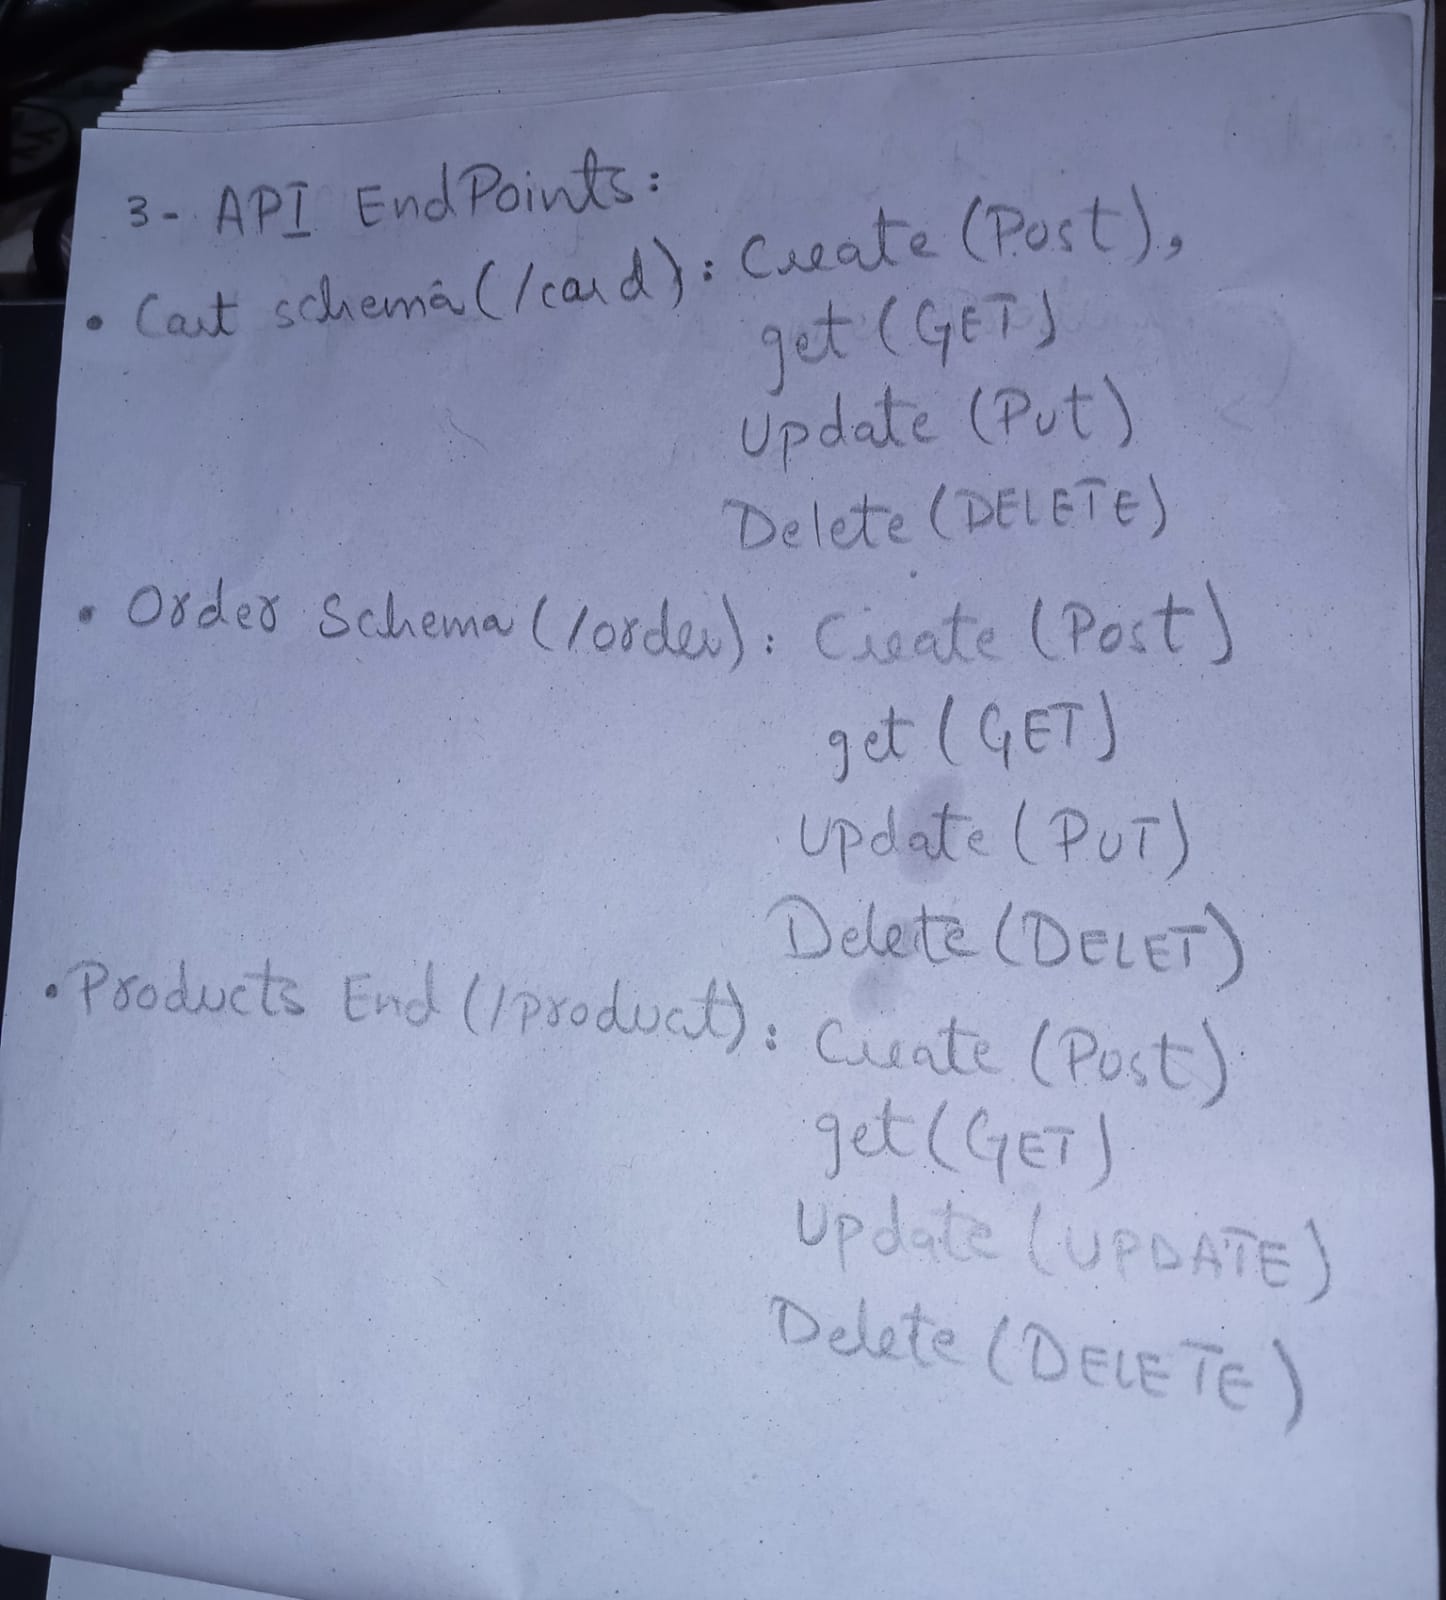 3- API EndPoints:
• Cart schema (/card): Create (Post),
get (GET)
Update (Put)
Delete (DELETE)
• Order Schema (/order): Create (Post)
get (GET)
Update (PUT)
Delete (DELET)
• Products End (/product): Create (Post)
get (GET)
Update (UPDATE)
Delete (DELETE)